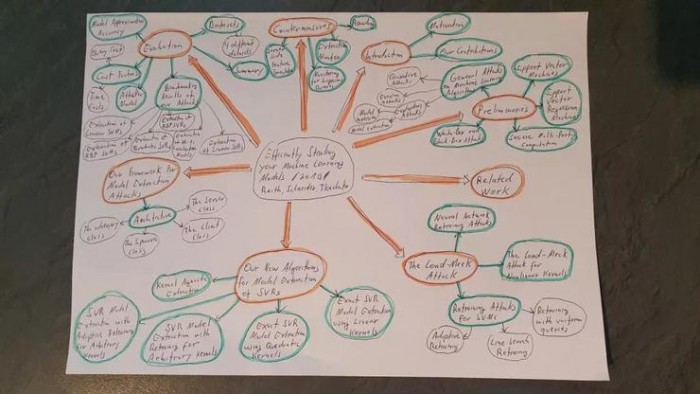 Model Approximation
Accuracy
Evaluation
Datasets
Delay Cost
4 different
datasets
Summary
Cost Factors
Time
Costs
Attacker
Model
Results of
our Attack
Extraction of
Linear SVRs
Extraction of
RBF SVRs
Extraction of Linear SVRs
Countermeasures
Rounding
Server
Side
Feature
Extraction
Monitoring
for Suspicious
Queries
Introduction
Motivation
Our Contributions
General Attacks
on Machine Learning
Algorithms
Evasion
attacks
Model extraction
Preliminaries
Support Vector
Machines
Support
Vector
Regression
Machines
White-Box and
Black-Box Attacks
Secure Multi-Party
Computation
Efficiently Stealing
your Machine Learning
Models (2019)
Reith, Schneider, Tkachenko
Related
Work
Our Framework for
Model Extraction
Attacks
Architecture
The Server
class
The Client
class
Our New Algorithms
for Model Extraction
of SVRs
Kernel Agnostic
Extraction
SVR Model
Extraction with
Adaptive Retraining
for Arbitrary
Kernels
SVR Model
Extraction with
Retraining for
Arbitrary Kernels
Exact SVR
Model Extraction
using Quadratic
Kernels
Exact SVR
Model Extraction
using Linear
Kernels
The Lowd-Meek
Attack
Neural Network
Retraining Attacks
The Lowd-Meek
Attack for
Nonlinear Kernels
Retraining Attacks
for SVMs
Adaptive
Retraining
Line Search
Retraining
Retraining
with uniform
queries